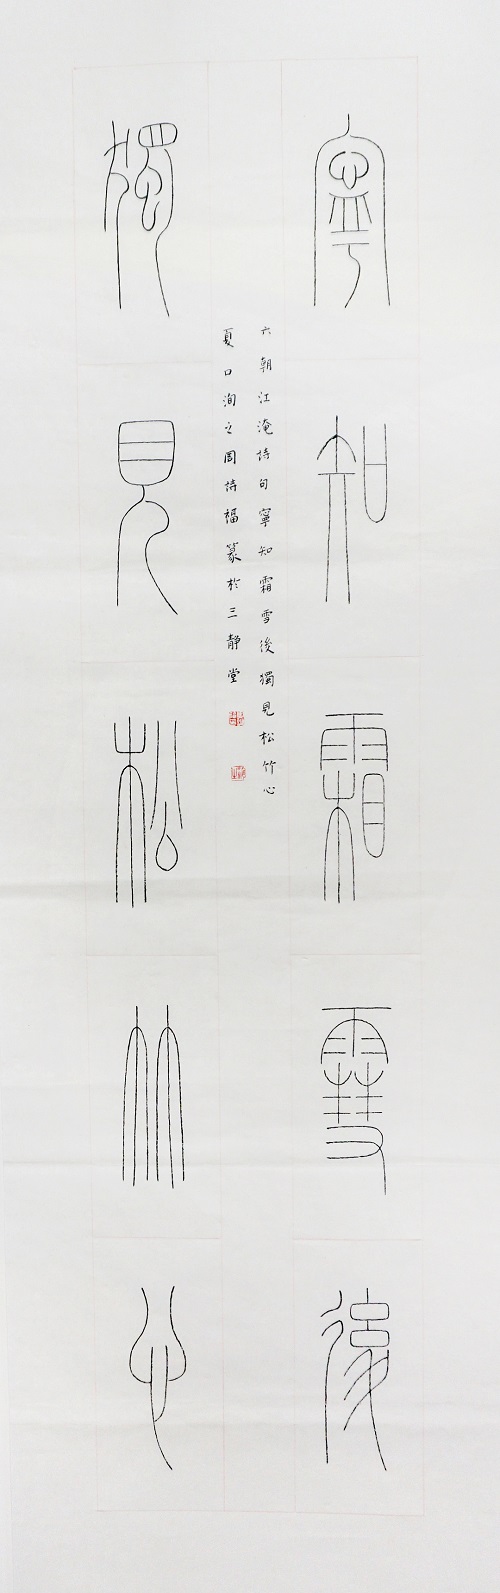 寧知霜雪後
獨見松竹心
六朝江淹詩句寧知霜雪後獨見松竹心
夏口洵之周詩福篆於三靜堂